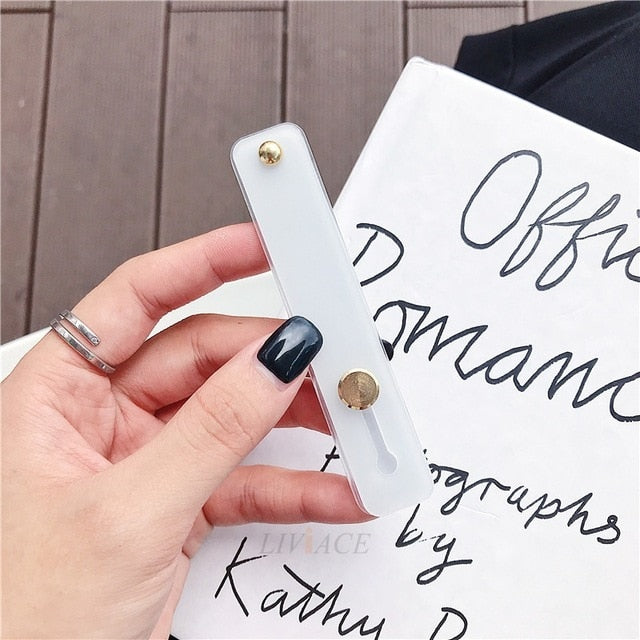 Offic
Romanc
ographs
by
Kathy R
LIVIACE